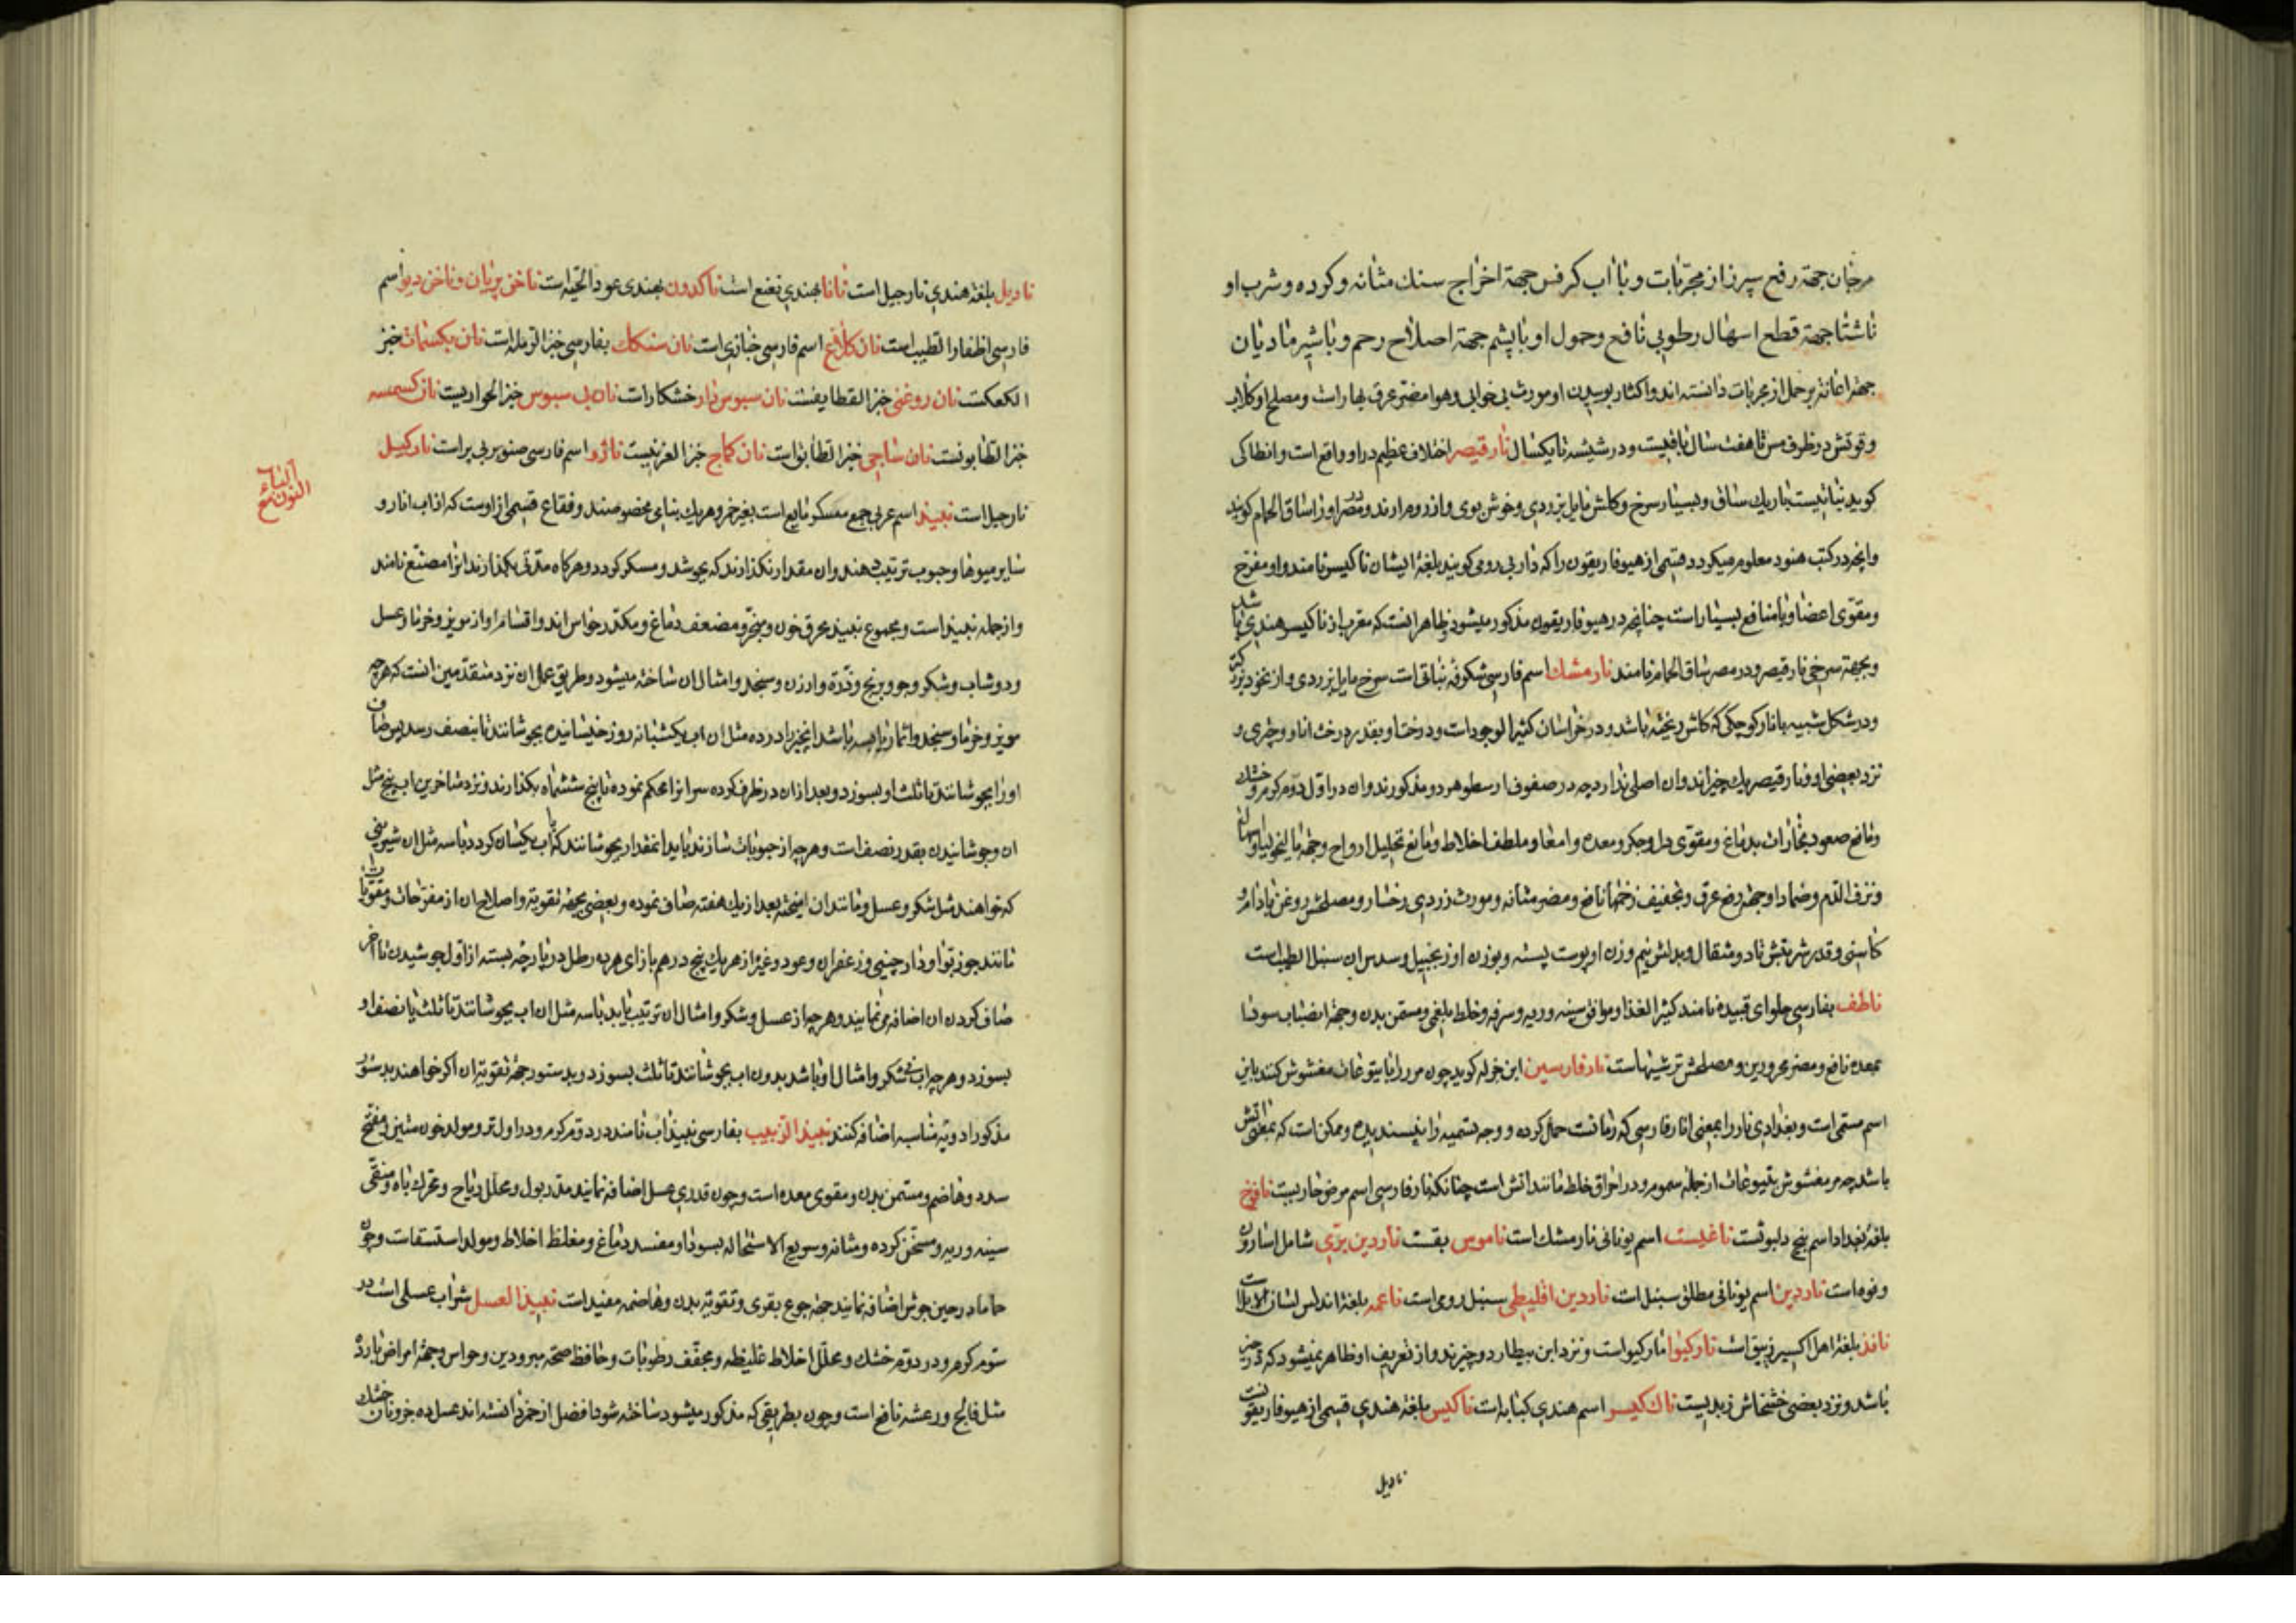 مرجان جهة رفع سپرز از مجربات و با آب کرفس جهة اخراج سنک مثانه و کرده و شرب او
ناشتا جهة قطع اسهال رطوبی نافع و حمول او با پشم جهة اصلاح رحم و با شیر مادیان
جهة اعانة بر حمل از مجربات دانسته اند و اکثار بوییدن او مورث بی خوابی و هوا مضر عرق بهار است و مصلح او کلاب
و قوتش در ظرف مس تا هفت سال باقیست و در شیشه تا یکسال نارقیصر اختلاف عظیم در او واقع است و انطاکی
کوید نباتیست باریک ساق و بسیار سرخ و کلش مایل بزردی و خوش بوی و از روم ارند و در مصر او را ساق الحمام کویند
و انچه در کتب هنود معلوم میکردد قسمی از هیوفاریقون را که داربی رومی کویند بلغة ایشان ناکیسر نامند و او مفرح
و مقوی اعضا و با منافع بسیار است چنانچه در هیوفاریقون مذکور میشود ظاهرا انست که معرب از ناکیسر هندی باشد
و بجهة سرخی نارقیصر و در مصر ساق الحمام نامند نارمشک اسم فارسی شکوفه نباتی است سرخ مایل بزردی و از نخود بزرکتر
و در شکل شبیه بانار کوچکی که کلش ریخته باشد و در خراسان کثیر الوجود است و درخت او بقدر درخت انار و چتری و
نزد بعضی او و نارقیصر یک چیز اند و ان اصلی ندارد چه در صفوف ارسطو هر دو مذکورند و ان در اول دوم کرم و خشک
و مانع صعود بخارات بدماغ و مقوی دل و جکر و معده و امعا و ملطف اخلاط و مانع تحلیل ارواح و جهة مالیخولیا و اسهال
و نزف الدم و ضماد او جهة رفع عرق و تجفیف زخمها نافع و مضر مثانه و مورث زردی رخسار و مصلحش روغن بادام و
کاسنی و قدر شربتش تا دو مثقال و بدلش نیم وزن او پوست پسته و بوزن او زنجبیل و سدس ان سنبل الطیب است
ناطف بفارسی حلوای قبیده نامند کثیر الغذا و موافق سینه و ریه و سرفه و خلط بلغمی و مسمن بدن و جهة انصباب سودا
بمعده نافع و مضر محرورین و مصلحش ترشیهاست نارفارسین ابن خوله کوید چون مر را با یتوعات مغشوش کنند باین
اسم مسمی است و بغدادی نار را بمعنی انار فارسی که رمانست حمل کرده و وجه تسمیه را نپسندیده و ممکن است که بمعنی اتش
باشد چه مر مغشوش بیتوعات از جمله سموم و در احراق خلط مانند اتش است چنانکه نار فارسی اسم مرض حاریست نافوخ
بلغة بغداد اسم بنج دلبوثست ناغلیست اسم یونانی نارمشک است ناموس بقست ناردین بری شامل اسارون
و فو است ناردین اسم یونانی مطلق سنبل است ناردین اقلیطی سنبل رومی است ناعمه بلغة اندلس لسان الابل است
نافذ بلغة اهل اکسیر زیبق است نارکیوا مارکیوا است و نزد ابن بیطار دو چیزند و از تعریف او ظاهر نمیشود که چه چیز
باشد و نزد بعضی خشخاش زبدیست ناک کیسر اسم هندی کبابه است ناکیس بلغة هندی قسمی از هیوفاریقونست
نادیل
نادیل بلغة هندی نارجیل است نانا بهندی نعنع است ناکدون بهندی عود الحیه است ناخن پریان و ناخن دیو اسم
فارسی اظفار الطیب است نان کلاغ اسم فارسی خبازی است نان سنکک بفارسی خبز الرمله است نان بکسمات خبز
الکعکست نان روغنی خبز القطایفست نان سبوس دار خشکار است نان بی سبوس خبز الحواریست نان کسمسه
خبز الطابونست نان ساجی خبز الطابق است نان کماج خبز الفرنیست ناژو اسم فارسی صنوبر بی بر است نارکیل
نارجیل است نبیذ اسم عربی جمیع مسکر مایع است بغیر خمر و هریک بنامی مخصوصند و فقاع قسمی از اوست که از اب انار و
سایر میوها و حبوب ترتیب دهند و ان مقدار نکذارند که بجوشد و مسکر کردد و هرکاه مدتی بکذارند انرا مصنع نامند
و از جمله نبیذ است و مجموع نبیذ محرق خون و مبخر و مضعف دماغ و مکدر حواس اند و اقسام او از مویز و خرما و عسل
و دوشاب و شکر و جو و برنج و ذره و ارزن و سنجد و امثال ان ساخته میشود و طریق عمل ان نزد متقدمین انست که هرچه
مویز و خرما و سنجد و اثمار یابسه باشد انچیز را در ده مثل ان اب یکشبانه روز خیسانیده بجوشانند تا بنصف رسد پس صاف
او را بجوشانند تا ثلث او بسوزد و بعد از ان در ظرف کرده سر انرا محکم نموده تا پنج شش ماه بکذارند و نزد متاخرین اب پنج مثل
ان و جوشانیدن بقدر نصف است و هرچه از حبوبات سازند باید انمقدار بجوشانند که با اب یکسان کردد با سه مثل ان شیرینی
که خواهند مثل شکر و عسل و مانند ان امیخته بعد از یک هفته صاف نموده و بعضی بجهة تقویة و اصلاح ان از مفرحات و مقویات
مانند جوز بوا و دارچینی و زعفران و عود و غیرا از هریک پنج درهم بازای هر ده رطل در پارچه بسته از اول جوشیدن تا اخر
صاف کردن ان اضافه می نمایند و هرچه از عسل و شکر و امثال ان ترتیب یابد با سه مثل ان اب بجوشانند تا ثلث یا نصف او
بسوزد و هرچه اب نی شکر و امثال او باشد بدون اب بجوشانند تا ثلث بسوزد و بدستور جهة تقویة ان اکر خواهند بدستور
مذکور ادویه مناسبه اضافه کنند نبیذ الزبیب بفارسی نبیذ اب نامند در دوم کرم و در اول تر و مولد خون متین و مفتح
سدد و هاضم و مسمن بدن و مقوی معده است و چون قدری عسل اضافه نمایند مدر بول و محلل ریاح و محرک باه و منقی
سینه و ریه و مسخن کرده و مثانه و سریع الاستحاله بسودا و مفسد دماغ و مغلظ اخلاط و مولد استسقاست و چون
حاما در حین جوش اضافه نمایند جهة جوع بقری و تقویة بدن و هاضمه مفید است نبیذ العسل شراب عسلی است در
سوم کرم و در دوم خشک و محلل اخلاط غلیظه و مجفف رطوبات و حافظ صحة مبرودین و حواس و جهة امراض بارده
مثل فالج و رعشه نافع است و چون بطریقی که مذکور میشود ساخته شود افضل از خمر دانسته اند عسل ده جزو نان خشک
النون مع